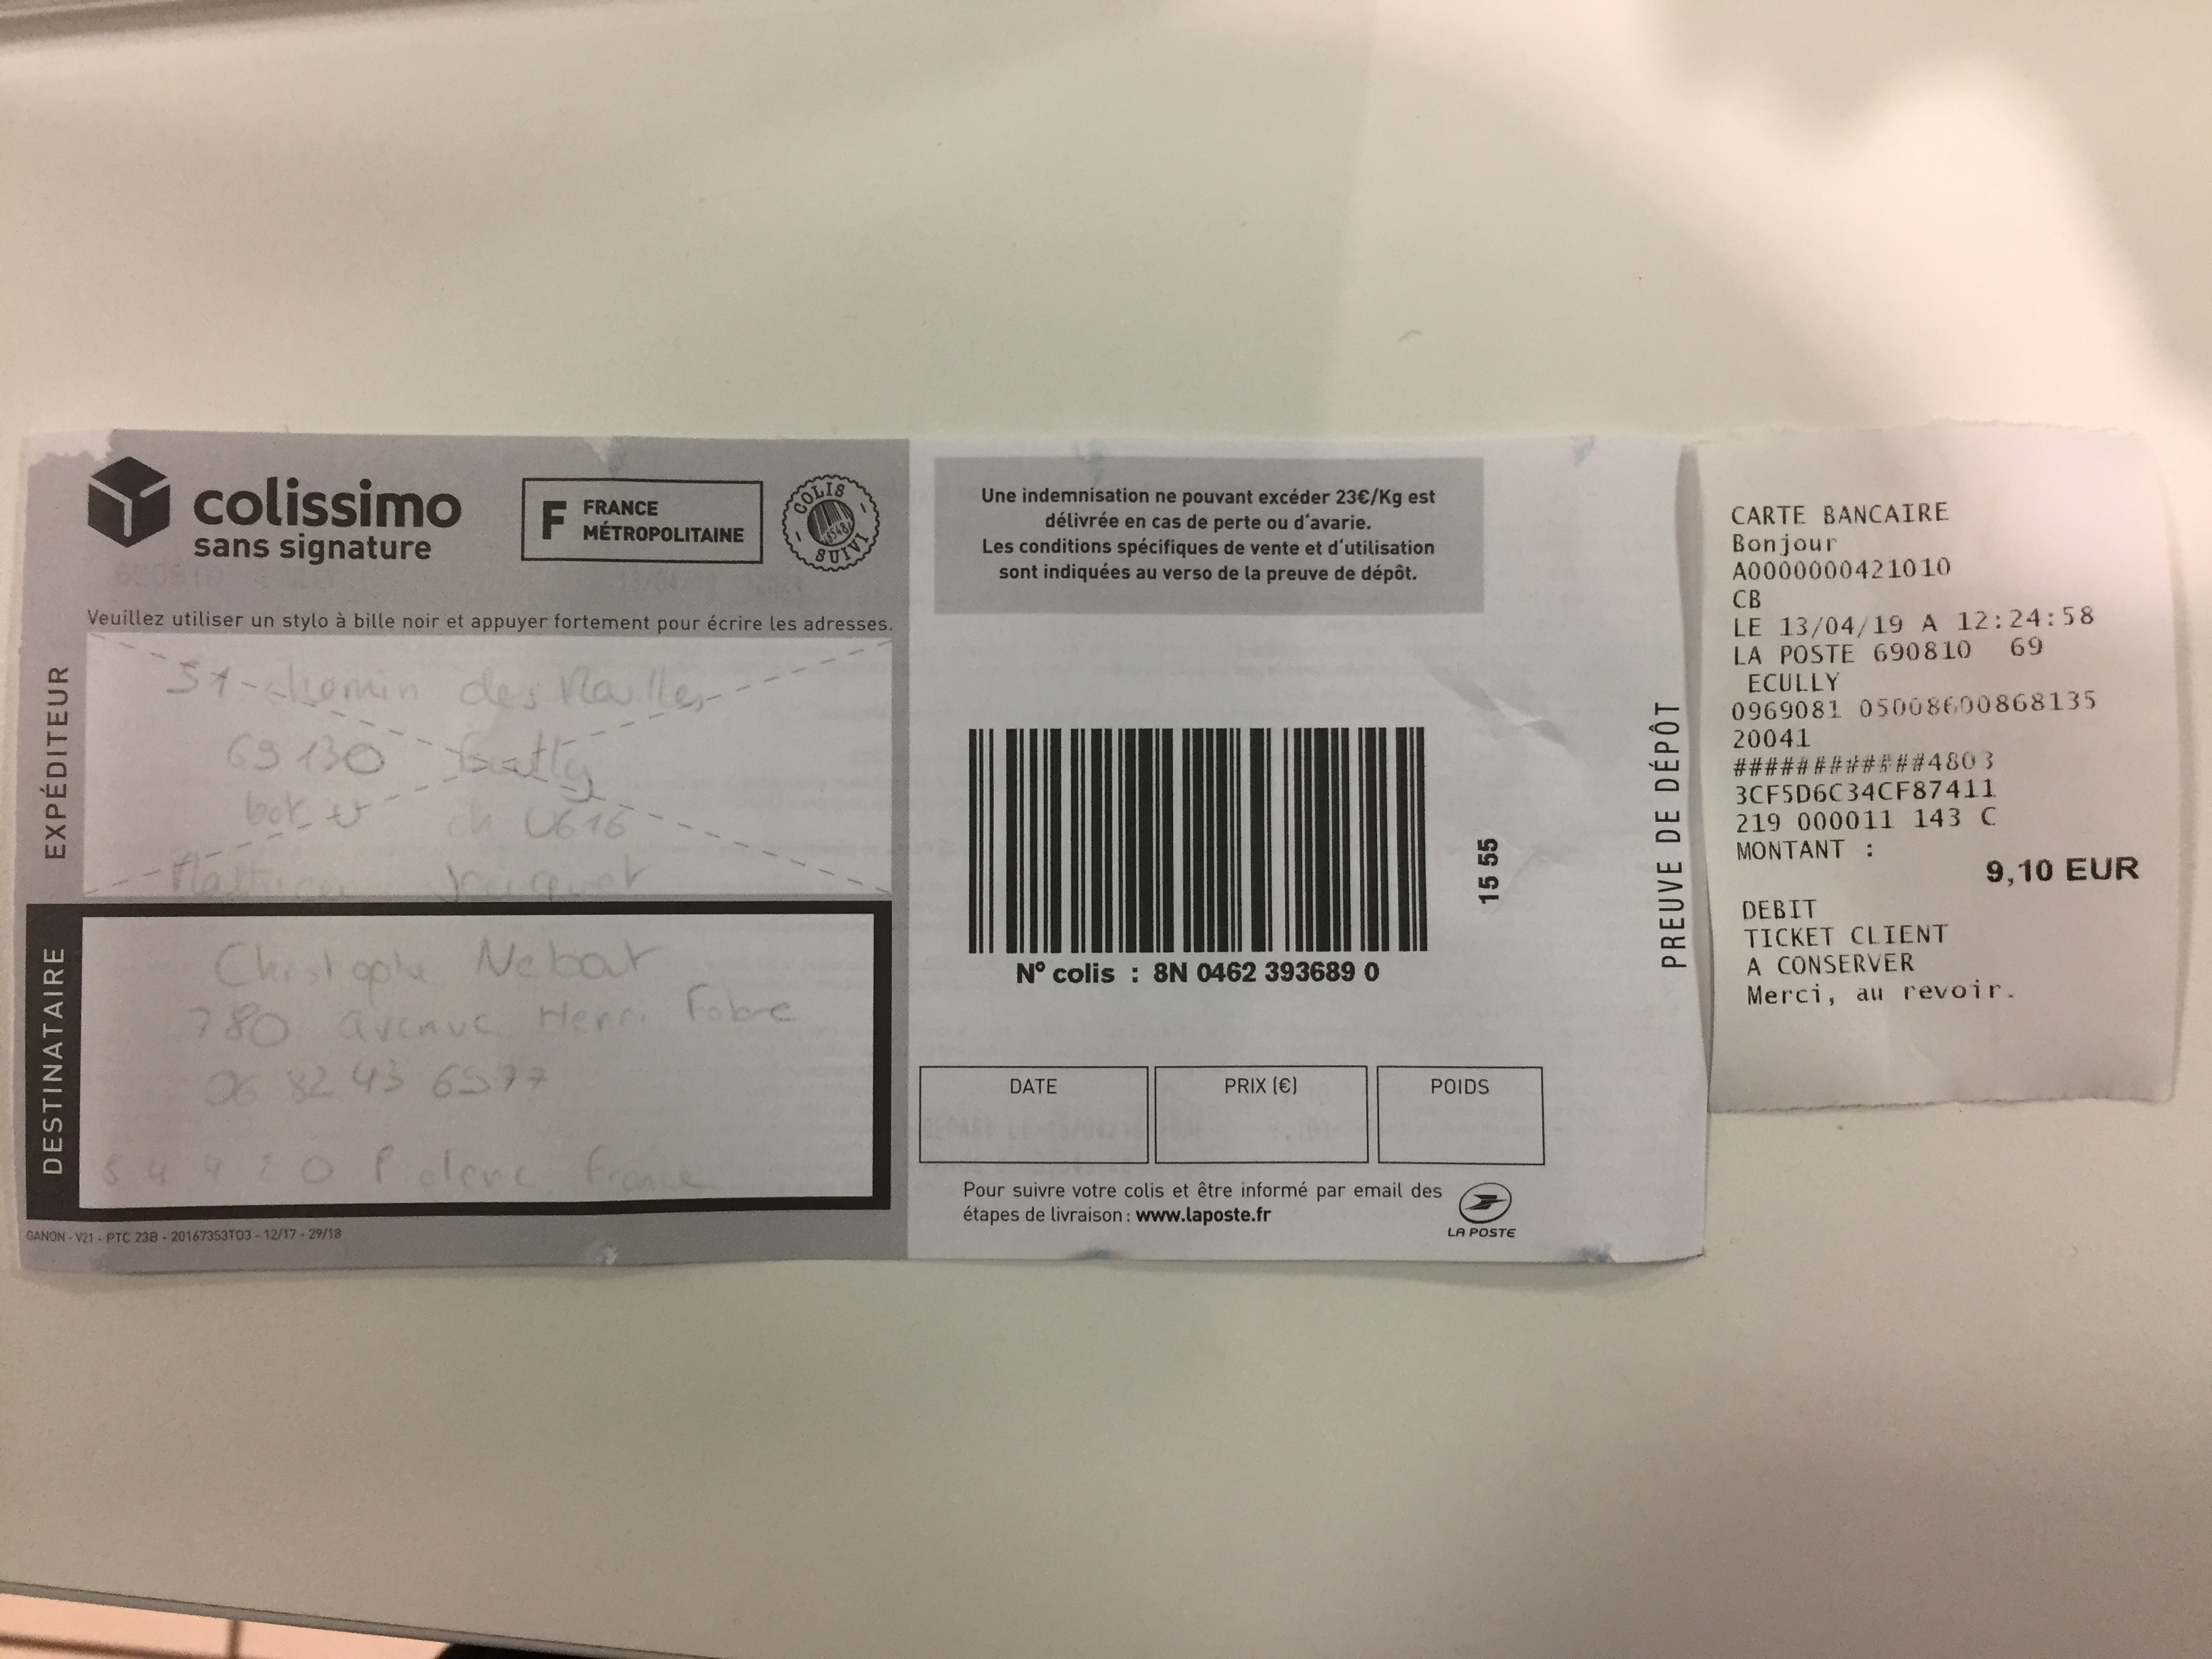 colissimo
sans signature
F FRANCE
MÉTROPOLITAINE
COLIS
SUIVI
Veuillez utiliser un stylo à bille noir et appuyer fortement pour écrire les adresses.
EXPÉDITEUR
chemin des
69130
bat U ch U616
DESTINATAIRE
Christophe Nebot
780 avenue Henri Fabre
06 82 43 69 77
France
GANON - V21 - PTC 23B - 20167353T03 - 12/17 - 29/18
Une indemnisation ne pouvant excéder 23€/Kg est
délivrée en cas de perte ou d'avarie.
Les conditions spécifiques de vente et d'utilisation
sont indiquées au verso de la preuve de dépôt.
N° colis : 8N 0462 393689 0
15 55
DATE
PRIX (€)
POIDS
Pour suivre votre colis et être informé par email des
étapes de livraison : www.laposte.fr
LA POSTE
PREUVE DE DÉPÔT
CARTE BANCAIRE
Bonjour
A0000000421010
CB
LE 13/04/19 A 12:24:58
LA POSTE 690810 69
ECULLY
0969081 05008600868135
20041
############4803
3CF5D6C34CF87411
219 000011 143 C
MONTANT :
9,10 EUR
DEBIT
TICKET CLIENT
A CONSERVER
Merci, au revoir.